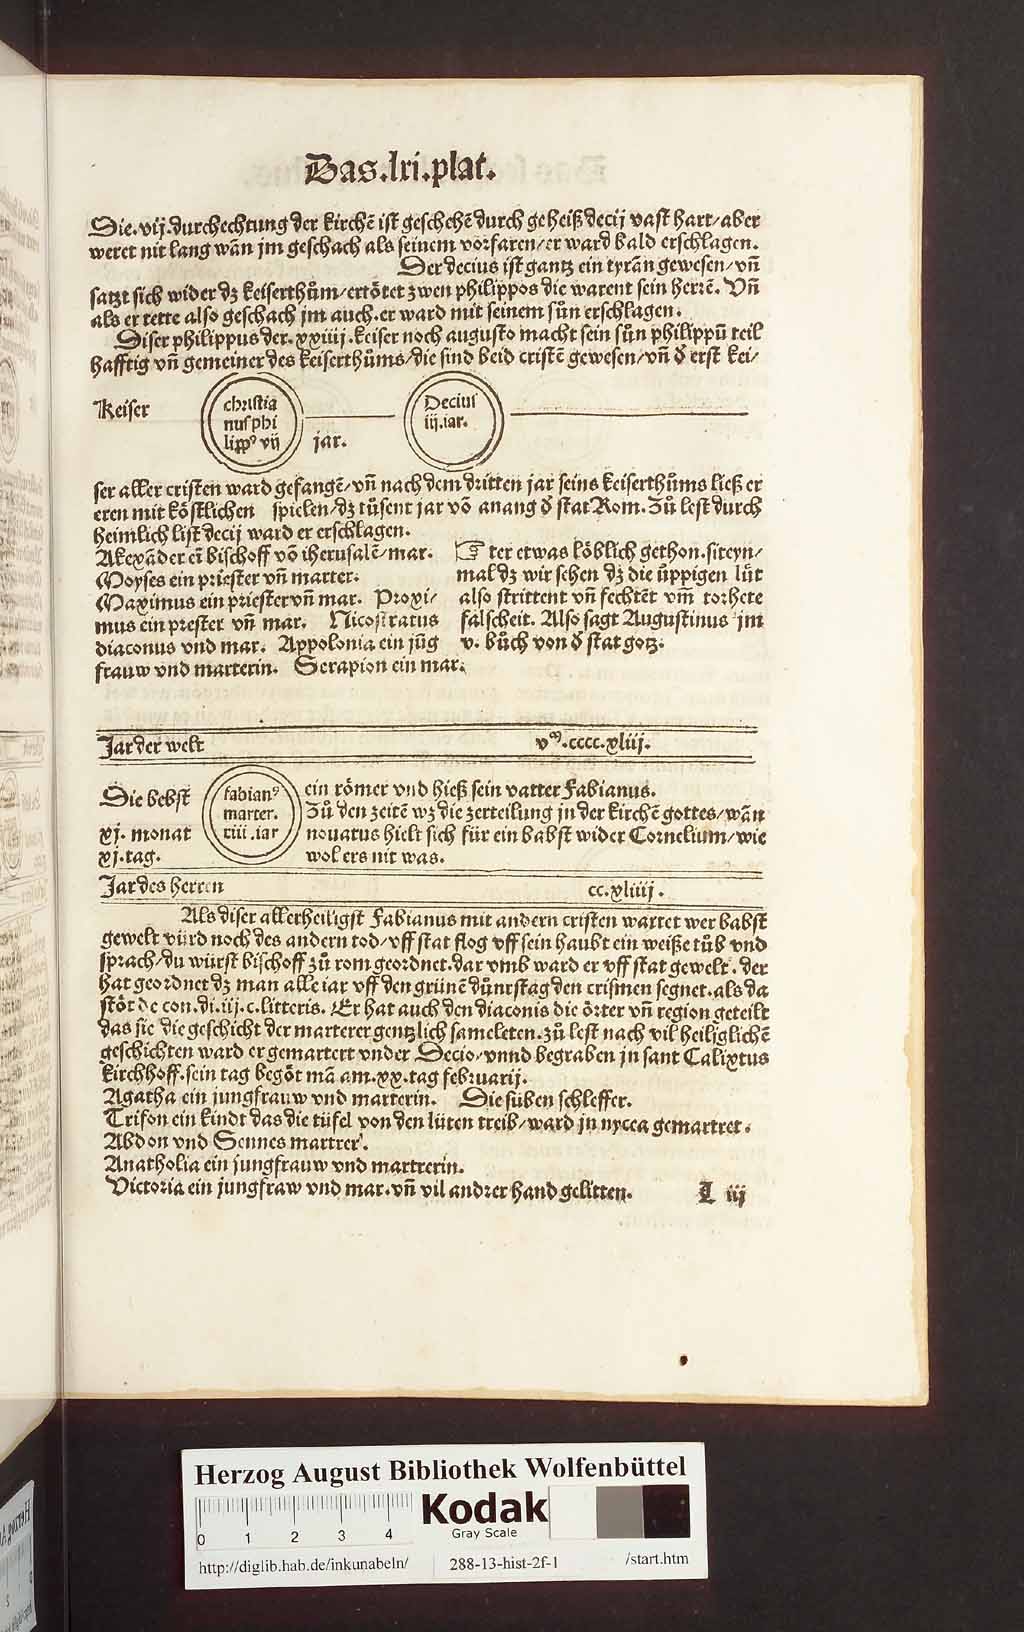 Das.lxi.plat.
Die.vij.durchechtung der kirchē ist geschehē durch geheiß decij vast hart/aber
weret nit lang wān jm geschach als seinem vorfaren/er ward bald erschlagen.
Der decius ist gantz ein tyrān gewesen/vn̄
satzt sich wider dz keiserthům/ertötet zwen philippos die warent sein herrē. Vn̄
als er tette also geschach jm auch.er ward mit seinem sůn erschlagen.
Diser philippus der.xxiiij.keiser noch augusto macht sein sůn philippū teil
hafftig vn̄ gemeiner des keiserthůms/die sind beid cristē gewesen/vn̄ d̄ erst kei/
Keiser
christia
nus phi
lippꝰ vij
jar.
Decius
iij.iar.
ser aller cristen ward gefangē/vn̄ nach dem dritten jar seins keiserthůms ließ er
eren mit köstlichen spielen/dz tůsent jar vō anang d̄ stat Rom. Zů lest durch
heimlich list decij ward er erschlagen.
Alexāder eī bischoff vō iherusalē/mar.
Moyses ein priester vn̄ marter.
Maximus ein priester vn̄ mar. Proxi/
mus ein prester vn̄ mar. Nicostratus
diaconus vnd mar. Appolonia ein jūg
frauw vnd marterin. Serapion ein mar.
☞ ter etwas löblich gethon.siteyn/
mal dz wir sehen dz die üppigen lüt
also strittent vn̄ fechtēt vm̄ torhete
falscheit. Also sagt Augustinus jm
v. bůch von d̄ stat gotz.
Jar der welt
vᵐ.cccc.xliij.
Die bebst
xj. monat
xj.tag.
fabianꝰ
marter.
xiii .iar
ein römer vnd hieß sein vatter Fabianus.
Zů den zeitē wz die zerteilung jn der kirchē gottes/wān
nouatus hielt sich für ein babst wider Cornelium/wie
wol ers nit was.
Jar des herren
cc.xliiij.
Als diser allerheiligst Fabianus mit andern cristen wartet wer babst
gewelt würd noch des andern tod/vff stat flog vff sein haubt ein weiße tůb vnd
sprach/du würst bischoff zů rom geordnet.dar vmb ward er vff stat gewelt. der
hat geordnet dz man alle iar vff den grünē důnrstag den crismen segnet.als da
stōt de con.di.iij.c.litteris. Er hat auch den diaconis die örter vn̄ region geteilt
das sie die geschicht der marterer gentzlich sameleten.zů lest nach vil heiliglichē
geschichten ward er gemartert vnder Decio/vnnd begraben jn sant Calixtus
kirchhoff.sein tag begöt mā am.xx.tag februarij.
Agatha ein jungfrauw vnd marterin. Die süben schleffer.
Trifon ein kindt das die tüfel von den lüten treib/ward jn nycea gemartret.
Abdon vnd Sennes martrer.
Anatholia ein jungfrauw vnd martrerin.
Victoria ein jungfraw vnd mar.vn̄ vil andrer hand gelitten.
L iij
Herzog August Bibliothek Wolfenbüttel
0 1 2 3 4
Kodak
Gray Scale
http://diglib.hab.de/inkunabeln/
288-13-hist-2f-1
/start.htm